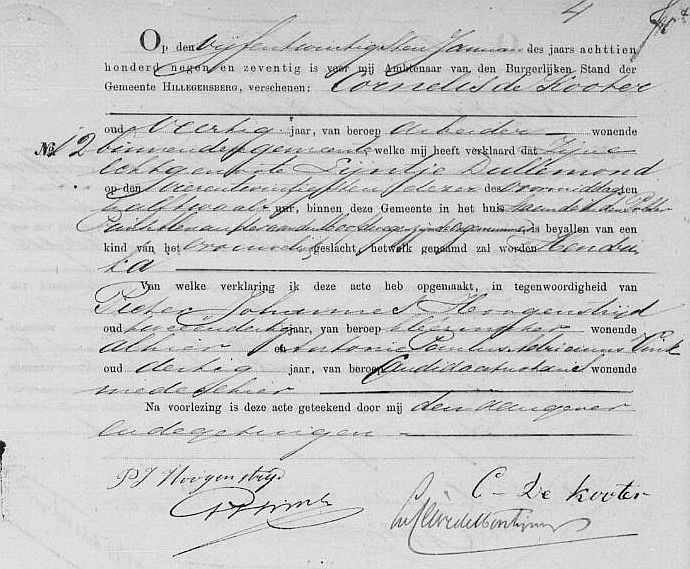 4
Op den vijfentwintigsten Januari des jaars achttien
honderd negen en zeventig is voor mij Ambtenaar van den Burgerlijken Stand der
Gemeente HILLEGERSBERG, verschenen: Cornelis de Kooter
oud veertig jaar, van beroep arbeider wonende
No. 12 binnen deze gemeente, welke mij heeft verklaard dat zijne
echtgenoote Lijntje Dullemond
op den vierentwintigsten dezer des voormiddags ten
half twaalf uur, binnen deze Gemeente in het huis staande aan den
is bevallen van een
kind van het vrouwelijk geslacht, hetwelk genaamd zal worden Hendri
ka
Van welke verklaring ik deze acte heb opgemaakt, in tegenwoordigheid van
Pieter Johannes Hoogenstrijd
oud twee en dertig jaar, van beroep wonende
alhier en Antonie Paulus Adrianus Vink
oud dertig jaar, van beroep Candidaat notaris wonende
mede alhier
Na voorlezing is deze acte geteekend door mij den aangever
en de getuigen
PJ Hoogenstrijd
C. De Kooter